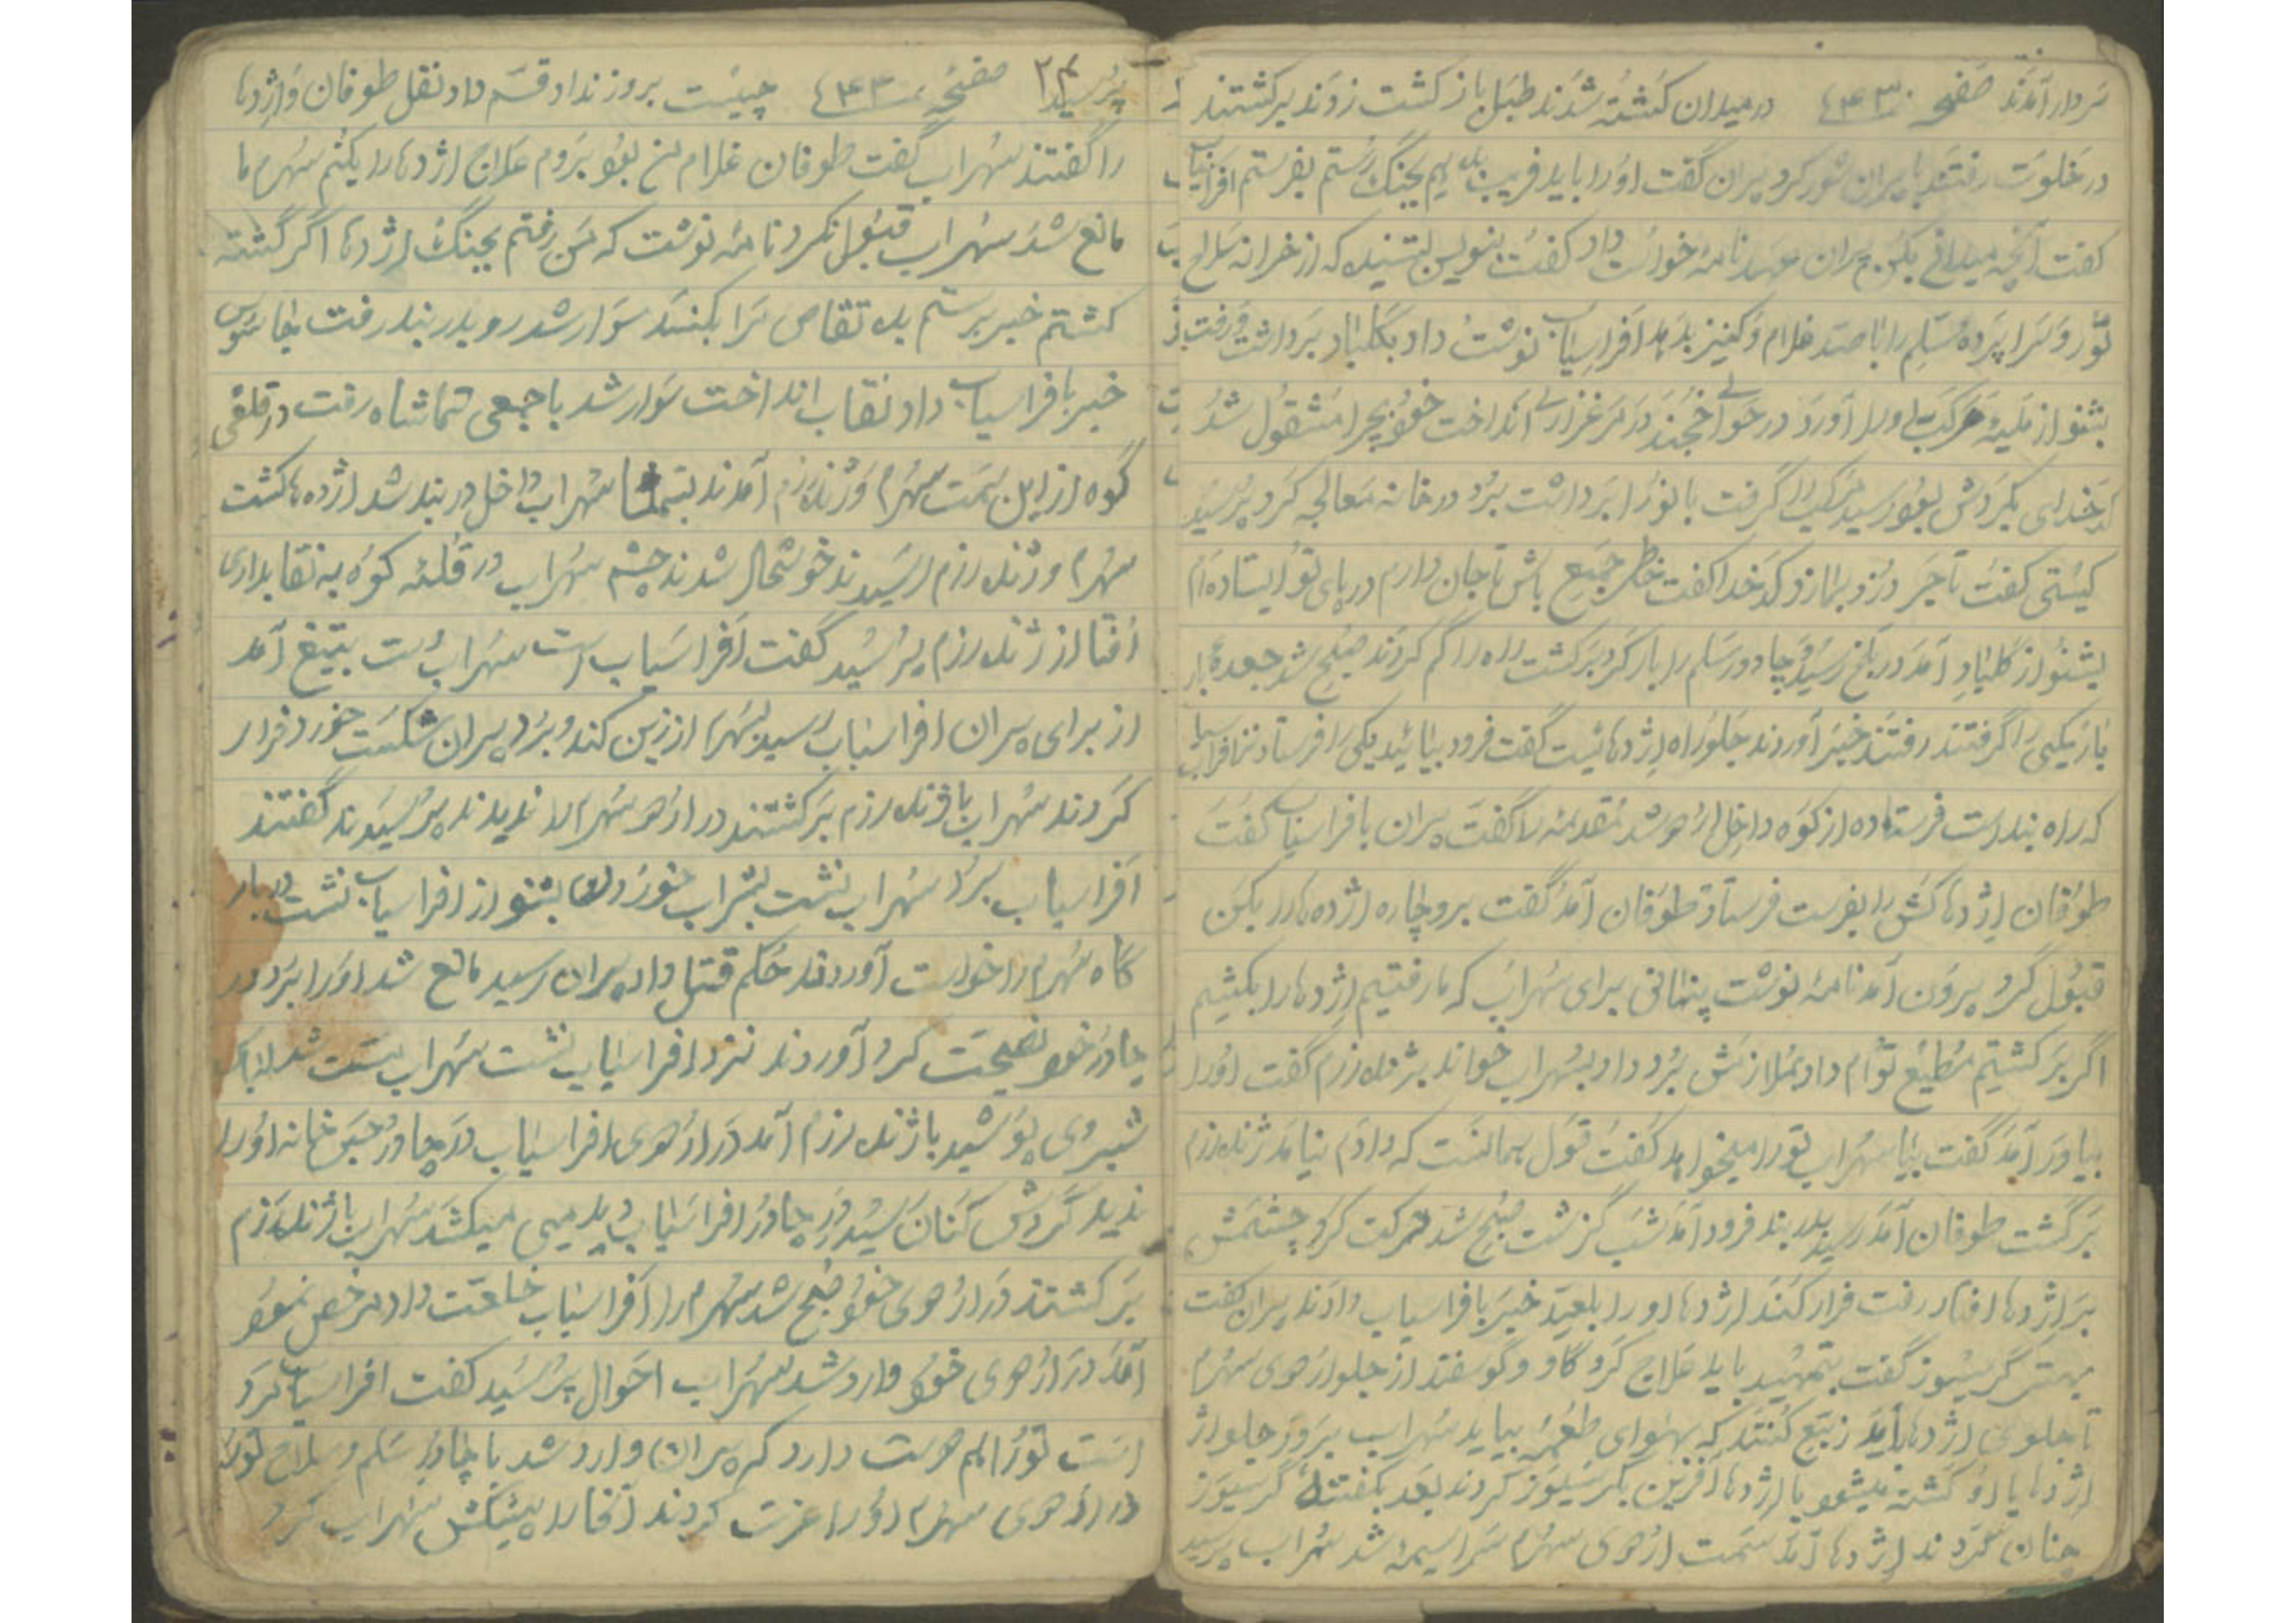 سردار آمدند صفحه ۴۳۰ در میدان کشته شدند طبل باز گشت زدند برگشتند
در خلوت رفتند با پیران شور کرد پیران گفت او را باید فریب بدهیم بجنگ رستم بفرستم افراسیاب
گفت آنچه میدانی بکن پیران عهدنامهٔ خواست داد گفت بنویس که از خزانه سلاح
تور و سراپرده سلم را با صد غلام و کنیز بدهد افراسیاب نوشت داد بگلباد برداشت و رفت
بشنو از مرکب او را آورد در حوالی خجند در مرغزاری انداخت خود بچرا مشقول شد
کدخدای بگردش بود رسید مرکب را گرفت با او را برداشت برد در خانه معالجه کرد پرسید
کیستی گفت تاجر دزد بما زد کدخدا گفت خاطر جمیع باش تا جان دارم در پای تو ایستاده‌ام
بشنو از گلباد آمد در بلخ رسید و چادور سلم را بار کرد برگشت راه را گم کردند صبح شد
یکی را گرفتند رفتند خبر آوردند جلو راه اژدهائیست گفت فرود بیائید یکی را فرستاد نزد افراسیاب
که راه بند است فرستاده از کوه داخل اژهو شد مقدمه را گفت پیران با افراسیاب گفت
طوفان اژدها کش را بفرست فرستاد طوفان آمد گفت برو چاره اژده‌ها را بکن
قبول کرد بیرون آمد نامهٔ نوشت پنهانی برای سهراب که ما رفتیم اژدها را بکشیم
اگر برگشتیم مطیع توام داد بملازمش برد داد بسهراب خواند بژنده رزم گفت او را
بیاور آمد گفت بیا سهراب تو را میخواهد گفت قول همانست که دادم نیامد ژنده رزم
برگشت طوفان آمد رسید بدربند فرود آمد شب گزشت صبح شد حرکت کرد چشمش
بر اژدها افتاد رفت فرار کند اژدها او را بلعید خبر با افراسیاب دادند پیران گفت
بهتر گرسیوز گفت بتمهید باید علاج کرد گاو و گوسفند از جلو ازهوی سهرم
تا جلوی اژدها باید زبح کنند که بهوای طعمه بیاید سهراب برود جلو اژ
اژدها یا او کشته میشود یا اژدها آفرین بگرسیوز کردند بعد بگفته گرسیوز
چنان کردند اژدها آمد سمت ازهوی سهرم سراسیمه شد سهراب پرسید
پرسید ۲۴ صفحه ۴۳۱ چیست بروز نداد قسم داد نقل طوفان و اژدها
را گفتند سهراب گفت طوفان غلام من بود بروم علاج اژدها را بکنم سهرم ما
مانع شد سهراب قبول نکرد نامه نوشت که من رفتم بجنگ اژدها اگر کشته
گشتم خبر برستم بده تقاص مرا بکنند سوار شد رو بدربند رفت جاسوس
خبر با افراسیاب داد نقاب انداخت سوار شد با جمعی تماشاه رفت در قلهٔ
کوه از این سمت سهرم و ژنده رزم آمدند بتماشا سهراب داخل دربند شد اژده‌ها کشت
سهرم و ژنده رزم رسیدند خوشحال شدند چشم سهراب در قلهٔ کوه به نقابداری
افتاد از ژنده رزم پرسید گفت افراسیاب است سهراب دست بتیغ آمد
از برای پیران افراسیاب رسید بسهرم از زین کند و برد پیران شکست خورد فرار
کردند سهراب با ژنده رزم برگشتند در ازهو سهرم را ندیدند پرسیدند گفتند
افراسیاب برد سهراب نشست بشراب خوردن بشنو از افراسیاب نشست دربار
گاه سهرم را خواست آوردند حکم قتل داد پیران رسید مانع شد او را برد در
چادر خود نصیحت کرد آوردند نزد افراسیاب نشست سهراب مست شد لباس
شبروی پوشید با ژنده رزم آمد در ازهوی افراسیاب در چادر حبس خانه او را
ندید گردش کنان رسید در چادر افراسیاب دید می میکشد سهراب با ژنده رزم
برگشتند در ازهوی خود صبح شد سهرم را افراسیاب خلعت داد مرخص نمود
آمد در ازهوی خود وارد شد سهراب احوال پرسید گفت افراسیاب مرد
است تو را هم دوست دارد که پیران وارد شد با چادر سلم و سلاح تور
در ازهوی سهرم او را عزت کردند آنها را پیشکش سهراب کرد